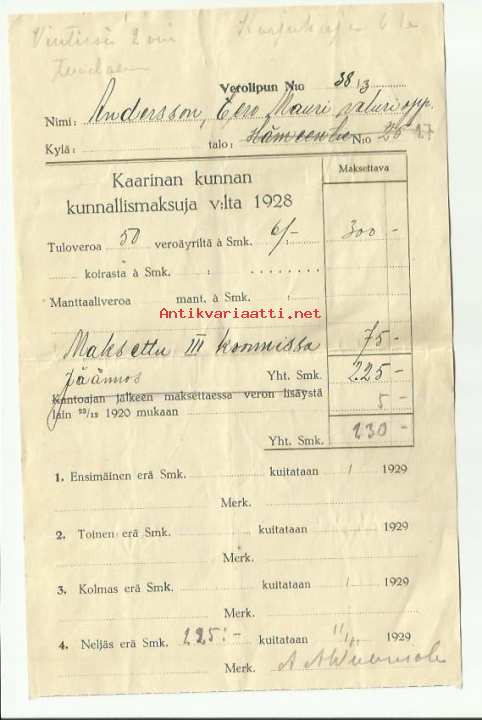 Verolipun N:o 38/3
Nimi: Andersson, Eero Mauri, valuri opp.
Kylä: talo: Hämeenke N:o 25 27
Kaarinan kunnan
kunnallismaksuja v:lta 1928
Maksettava
Tuloveroa 50 veroäyriltä à Smk. 6/- 300 -
koirasta à Smk. :
Manttaaliveroa mant. à Smk. :
Antikvariaatti.net
Maksettu III kannissa 75 -
Jäännös Yht. Smk. 225 -
Kantoajan jälkeen maksettaessa veron lisäystä
lain 23/12 1920 mukaan 5 -
Yht. Smk. 230 -
1. Ensimäinen erä Smk. kuitataan / 1929
Merk.
2. Toinen erä Smk. kuitataan / 1929
Merk.
3. Kolmas erä Smk. kuitataan / 1929
Merk.
4. Neljäs erä Smk. 225:- kuitataan 11/11 1929
Merk.